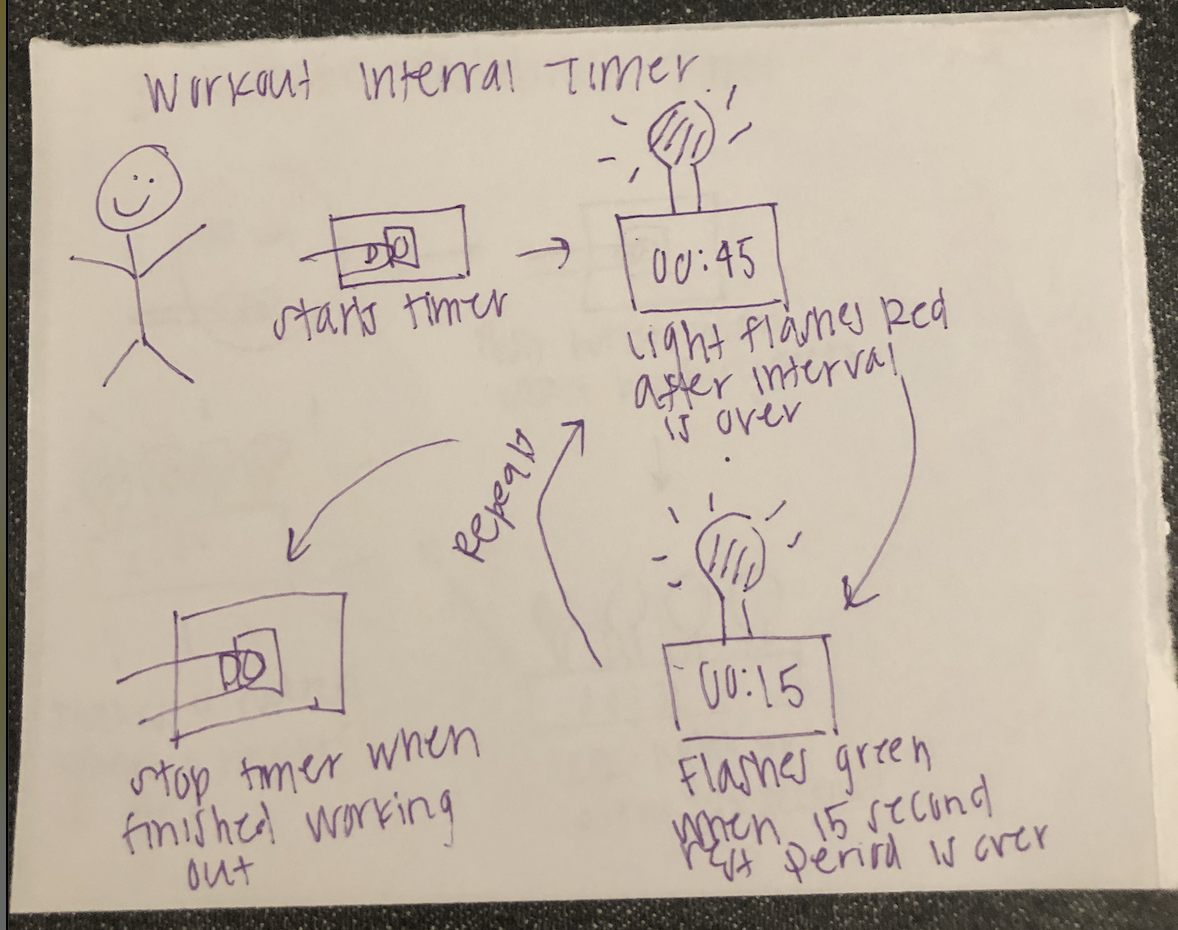 Workout Interval Timer
starts timer
00:45
light flashes Red
after interval
is over
Repeat
00:15
Flashes green
when 15 second
rest period is over
stop timer when
finished working
out